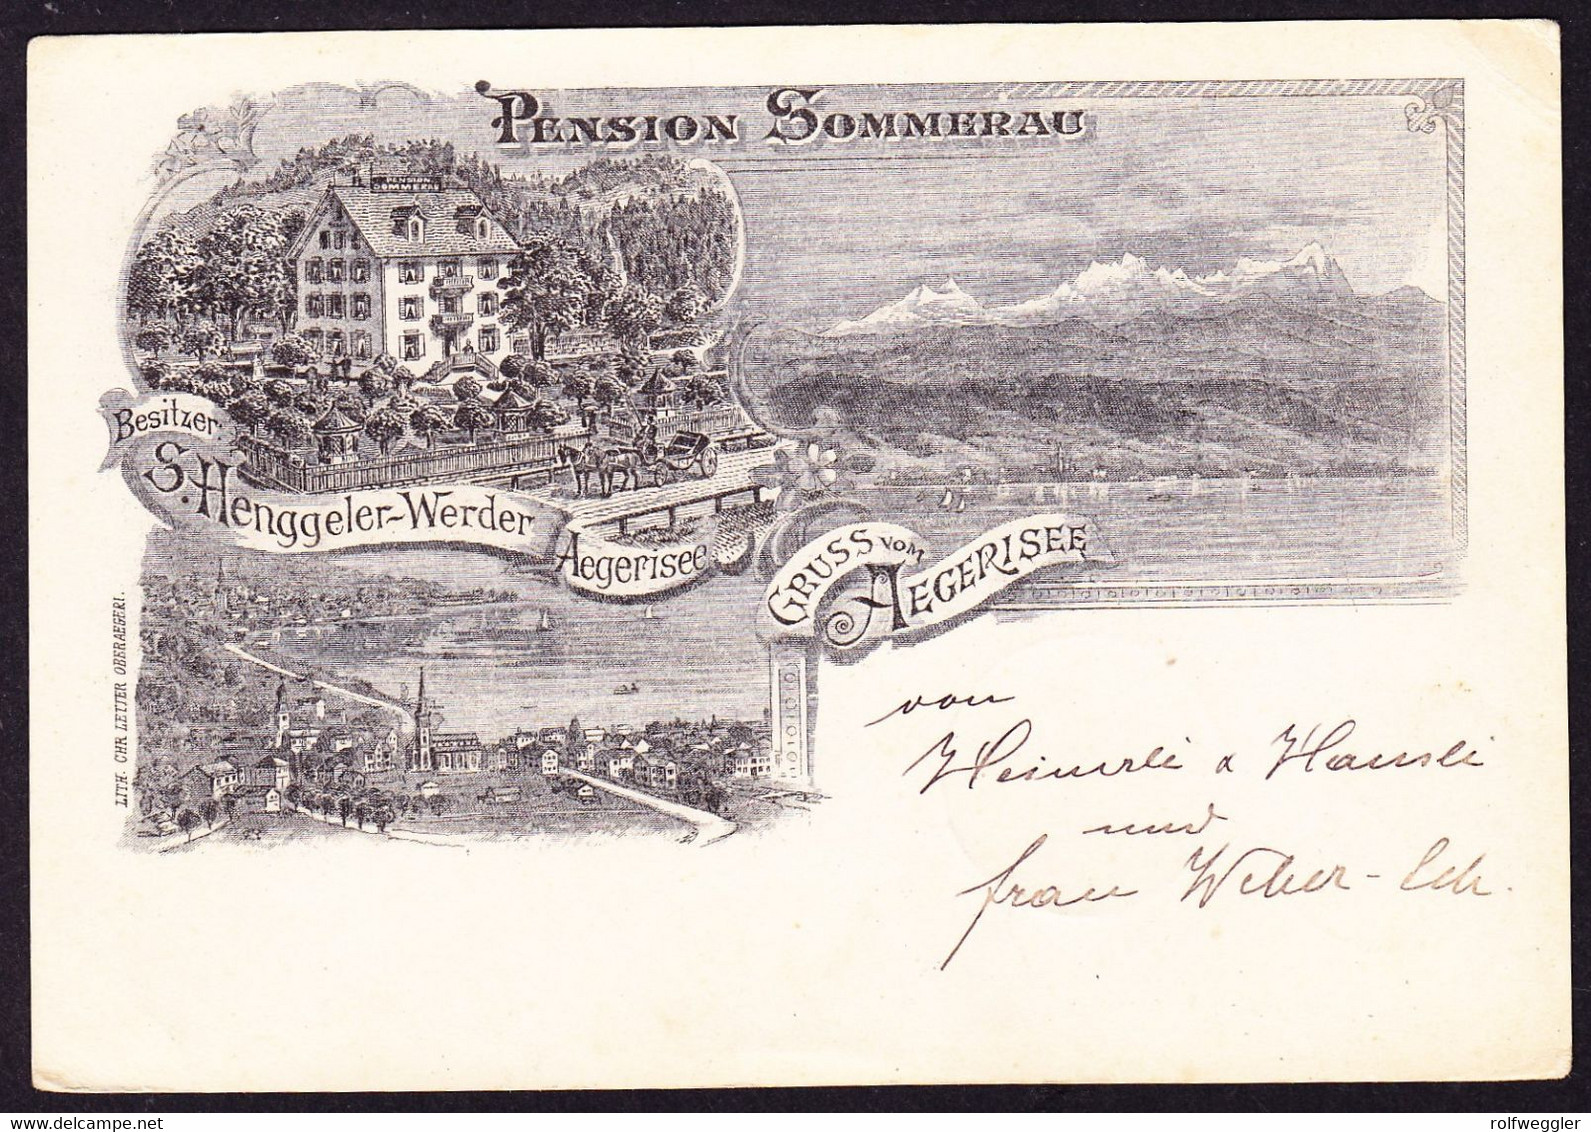 PENSION SOMMERAU
PENSION
SOMMERAU
Besitzer:
S. Henggeler-Werder
Aegerisee
GRUSS VOM
AEGERISEE
LITH. CHR. LEUTER OBERAEGERI.
von
Heinerli & Hansli
und
frau Weber-
rolfweggler